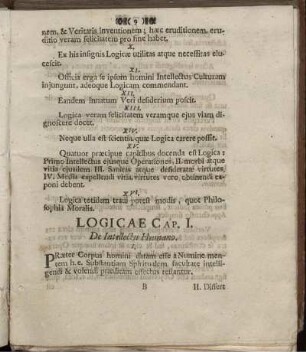 9
nem, & Veritatis inventionem; hæc eruditionem, eru-
ditio veram felicitatem pro fine habet.
X.
Ex his insignis Logicæ utilitas atque necessitas elu-
cescit.
XI.
Officia erga se ipsum homini Intellectus Culturam
injungunt, adeoque Logicam commendant.
XII.
Eandem innatum Veri desiderium poscit.
XIII.
Logica veram felicitatem veramque ejus viam di-
gnoscere docet.
XIV.
Neque ulla est scientia, quæ Logica carere possit.
XV.
Quatuor præcipue capitibus docenda est Logica:
Primo Intellectus ejusque Operationes, II. morbi atque
vitia ejusdem III. Sanitas atque desideratæ virtutes,
IV. Media expellendi vitia, virtutes vero obtinendi ex-
poni debent.
XVI.
Logica totidem tractari potest modis, quot Philo-
sophia Moralis.
LOGICAE CAP. I.
De Intellectu Humano.
I.
PRæter Corpus homini datam esse a Numine men-
tem h.e. Substantiam Spiritualem, facultate intelli-
gendi & volendi præditam effectus testantur.
B
II. Differt